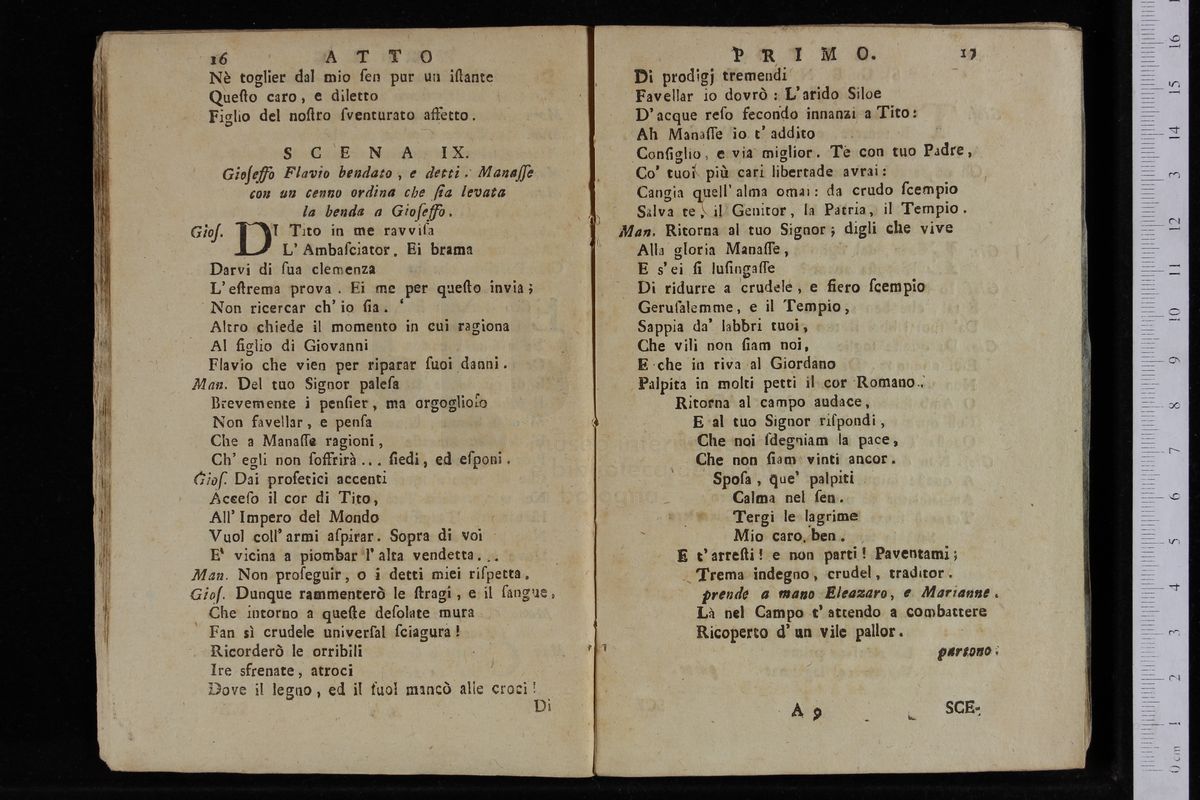 16 ATTO
Nè toglier dal mio ſen pur un iſtante
Queſto caro, e diletto
Figlio del noſtro ſventurato affetto.
SCENA IX.
Gioſeffo Flavio bendato, e detti. Manaſſe
con un cenno ordina che ſia levata
la benda a Gioſeffo.
Gioſ. DI Tito in me ravviſa
L'Ambaſciator. Ei brama
Darvi di ſua clemenza
L'eſtrema prova. Ei me per queſto invia;
Non ricercar ch'io ſia.
Altro chiede il momento in cui ragiona
Al figlio di Giovanni
Flavio che vien per riparar ſuoi danni.
Man. Del tuo Signor paleſa
Brevemente i penſier, ma orgoglioſo
Non favellar, e penſa
Che a Manaſſe ragioni,
Ch'egli non ſoffrirà... ſiedi, ed eſponi.
Gioſ. Dai profetici accenti
Acceſo il cor di Tito,
All'Impero del Mondo
Vuol coll'armi aſpirar. Sopra di voi
E' vicina a piombar l'alta vendetta...
Man. Non proſeguir, o i detti miei riſpetta.
Gioſ. Dunque rammenterò le ſtragi, e il ſangue,
Che intorno a queſte deſolate mura
Fan sì crudele univerſal ſciagura!
Ricorderò le orribili
Ire sfrenate, atroci
Dove il legno, ed il ſuol mancò alle croci!
Di
PRIMO. 17
Di prodigj tremendi
Favellar io dovrò: L'arido Siloe
D'acque reſo fecondo innanzi a Tito:
Ah Manaſſe io t'addito
Conſiglio, e via miglior. Te con tuo Padre,
Co' tuoi più cari libertade avrai:
Cangia quell'alma omai: da crudo ſcempio
Salva te, il Genitor, la Patria, il Tempio.
Man. Ritorna al tuo Signor; digli che vive
Alla gloria Manaſſe,
E s'ei ſi luſingaſſe
Di ridurre a crudele, e fiero ſcempio
Geruſalemme, e il Tempio,
Sappia da' labbri tuoi,
Che vili non ſiam noi,
E che in riva al Giordano
Palpita in molti petti il cor Romano.
Ritorna al campo audace,
E al tuo Signor riſpondi,
Che noi ſdegniam la pace,
Che non ſiam vinti ancor.
Spoſa, que' palpiti
Calma nel ſen.
Tergi le lagrime
Mio caro ben.
E t'arreſti! e non parti! Paventami;
Trema indegno, crudel, traditor.
prende a mano Eleazaro, e Marianne.
Là nel Campo t'attendo a combattere
Ricoperto d'un vile pallor.
partono.
A 9 SCE-